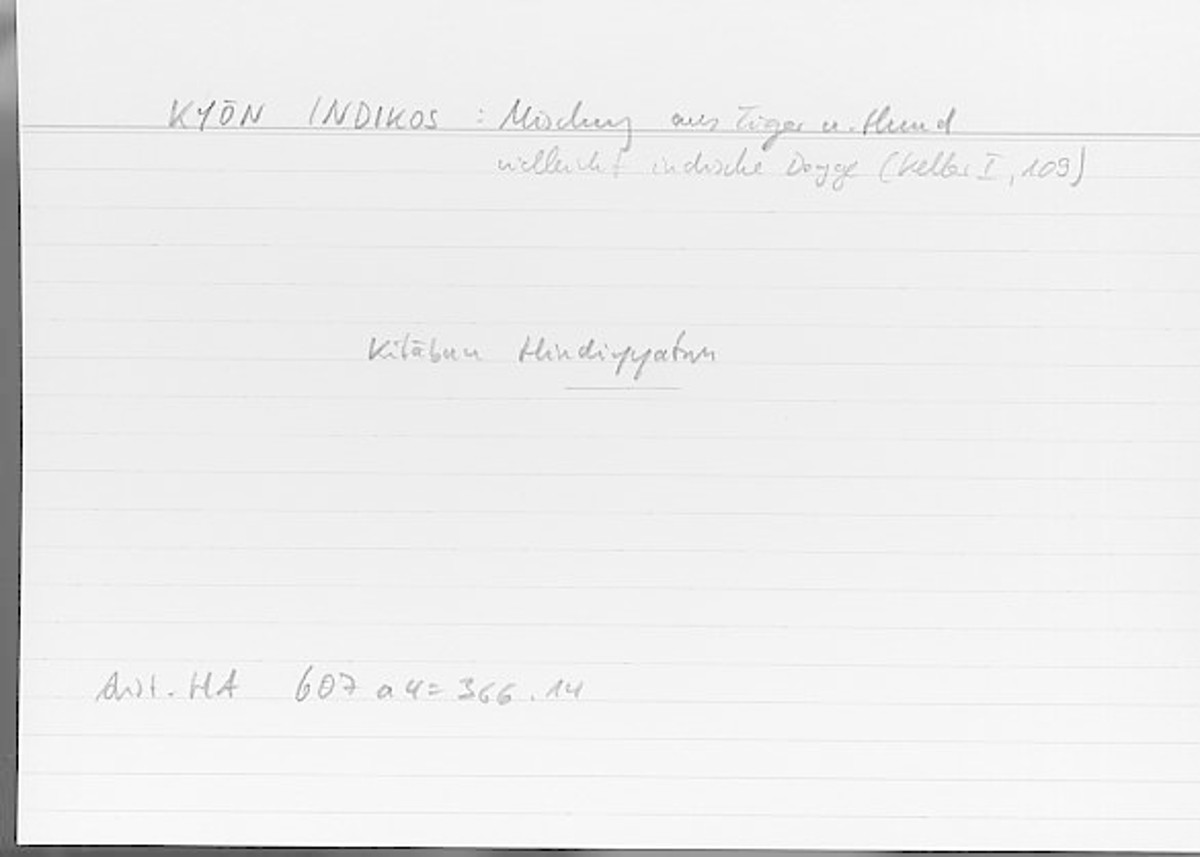 KYŌN INDIKOS : Mischung aus Tiger u. Hund
vielleicht indische Dogge (Keller I, 109)
Kilābun Hindiyyatun
Arist. HA 607 a 4 = 366.14